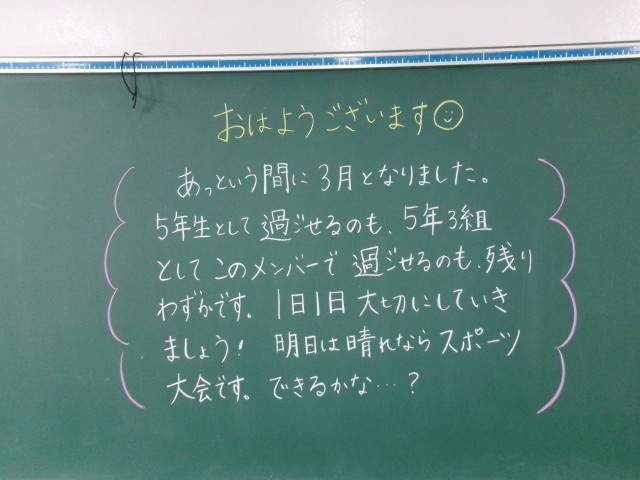 おはようございます☺
あっという間に3月となりました。
5年生として過ごせるのも、5年3組
としてこのメンバーで過ごせるのも、残り
わずかです。1日1日大切にしていき
ましょう! 明日は晴れならスポーツ
大会です。できるかな…?